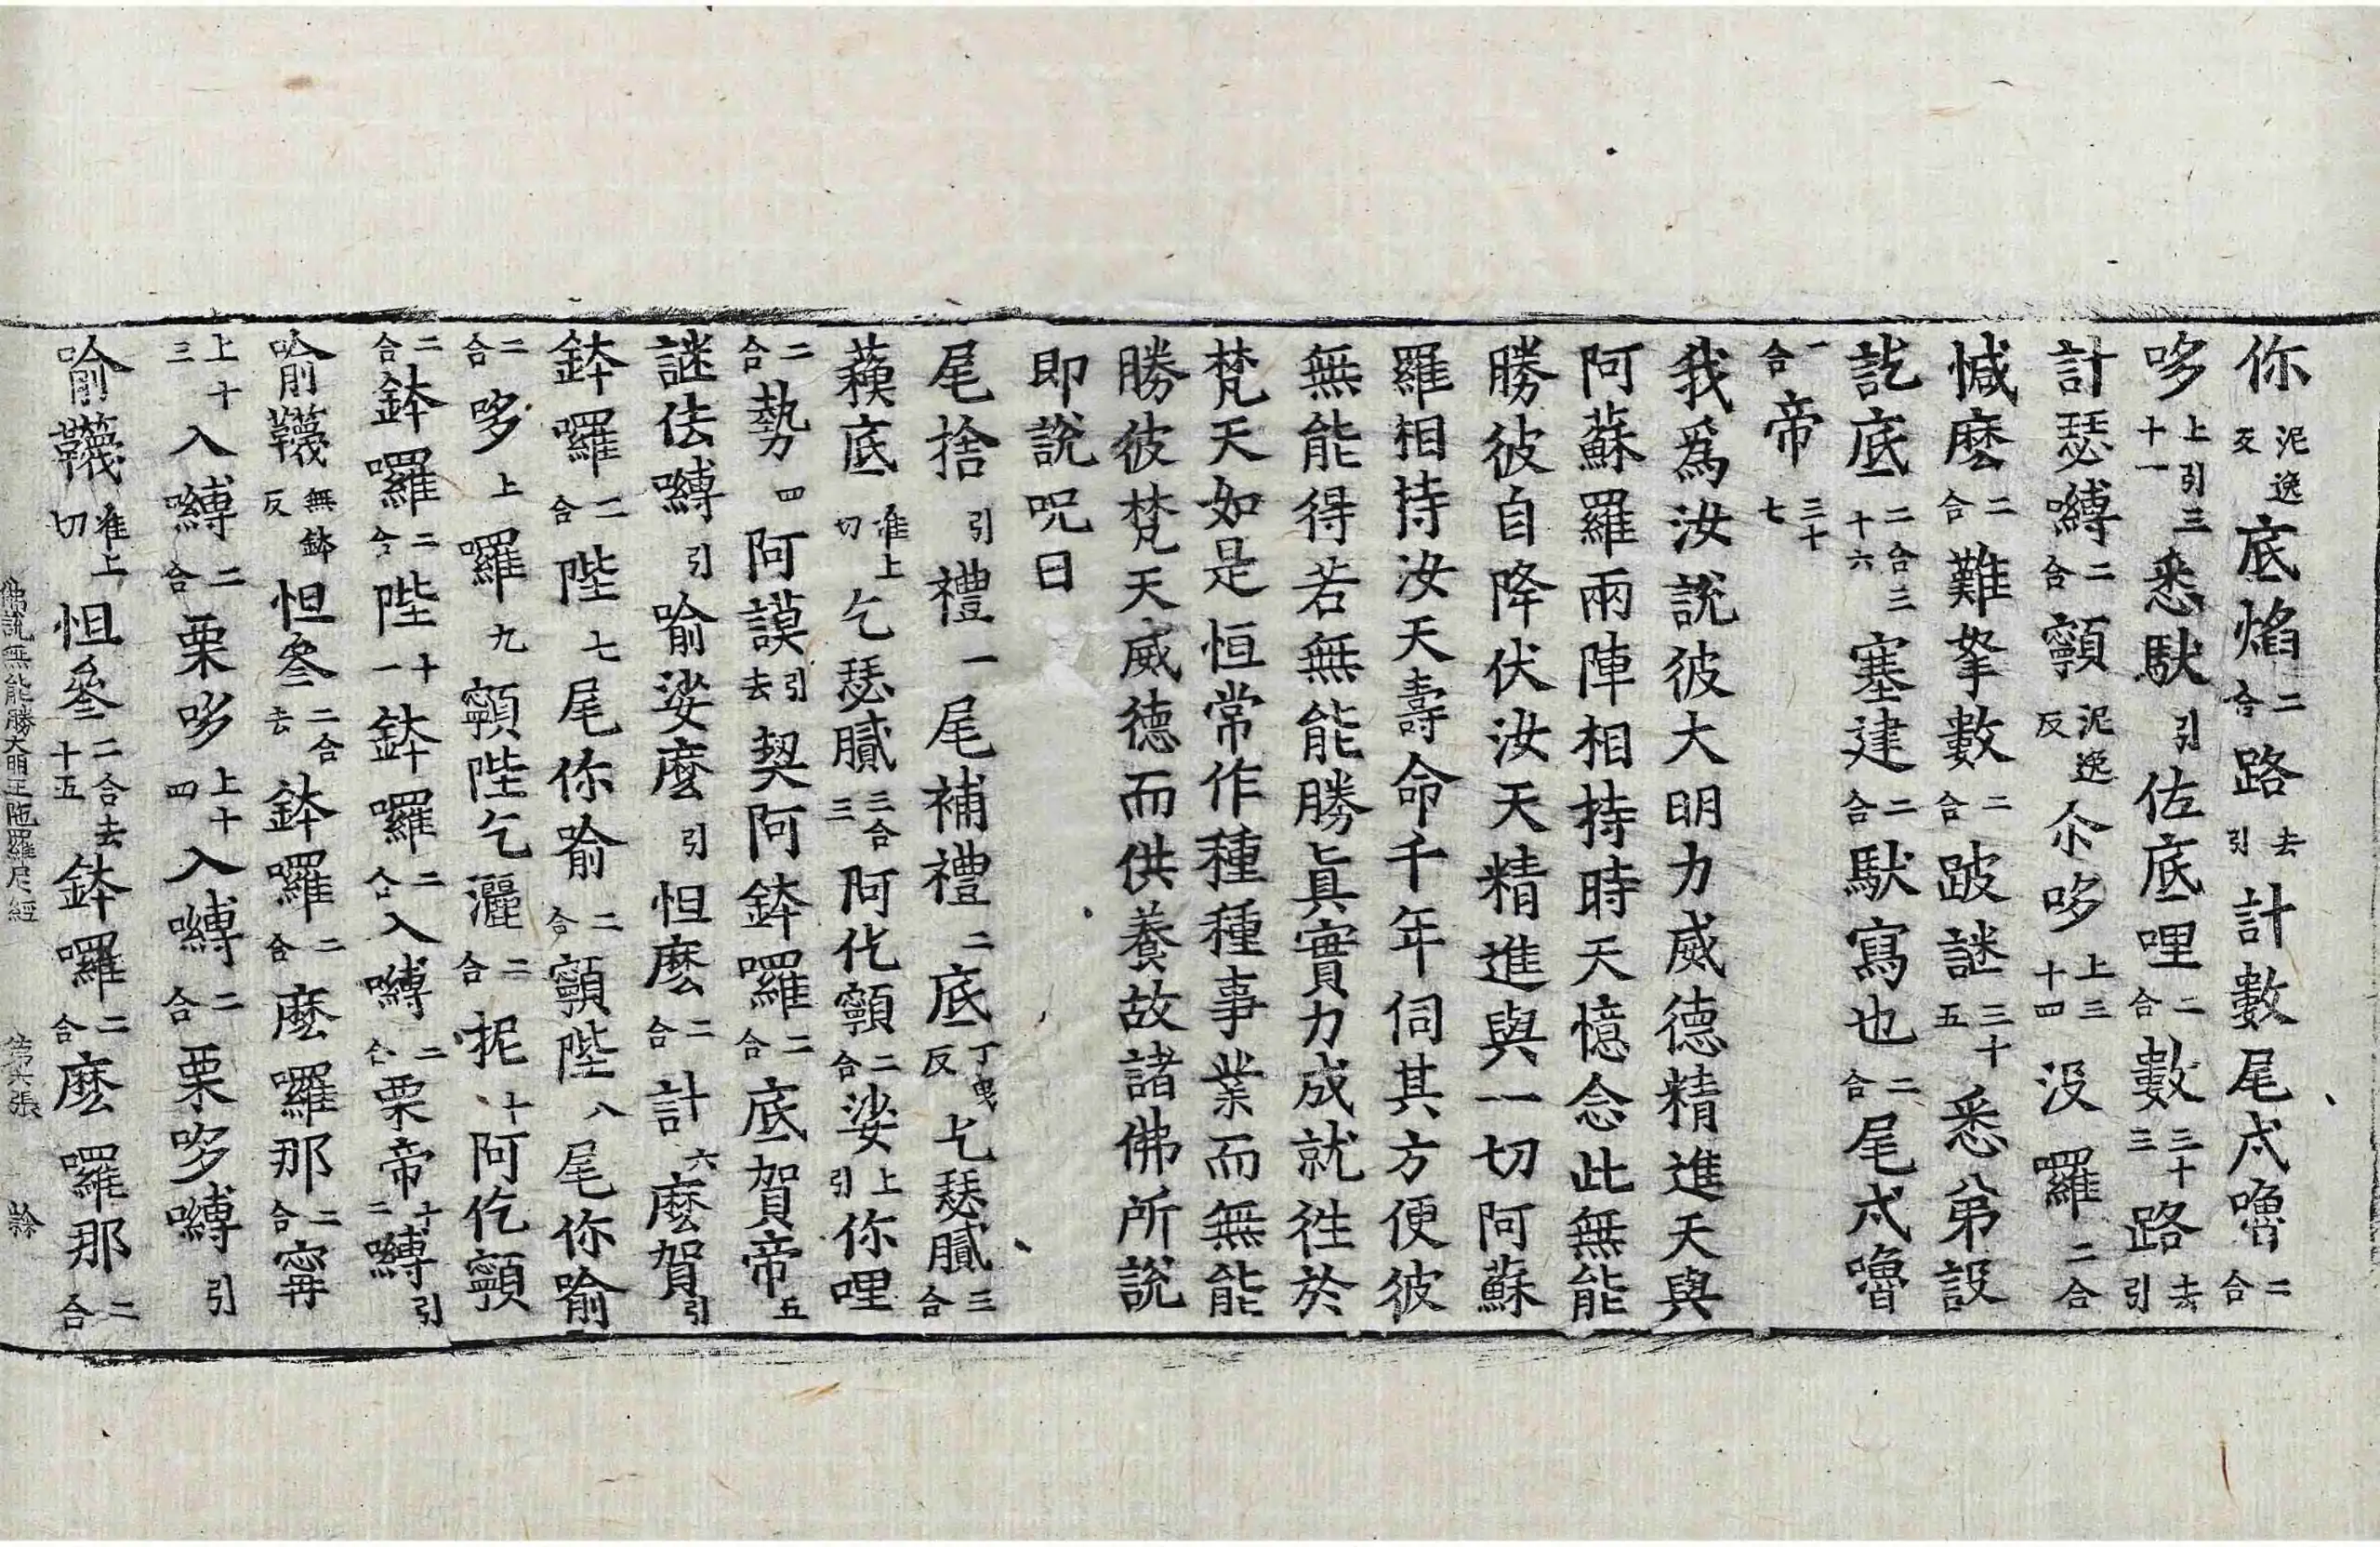 你泥逸反底焰二合路去引計數尾忒嚕二合
哆上引三十一悉馱引佐底哩二合數三十三路去引
計瑟嚩二合顐泥逸反尒哆上三十四沒囉二合
憾麽二合難拏數二合跛謎三十五悉弟設
訖底二合三十六塞建二合馱寫也二合尾忒嚕
二合帝三十七
我爲汝說彼大明力威德精進天與
阿蘇羅兩陣相持時天憶念此無能
勝彼自降伏汝天精進與一切阿蘇
羅相持汝天壽命千年伺其方便彼
無能得若無能勝眞實力成就徃於
梵天如是恒常作種種事業而無能
勝彼梵天威德而供養故諸佛所說
即說呪曰
尾捨引禮一尾補禮二底丁曳反乞瑟膩三合
蘓底准上切乞瑟膩三合三阿仡顐二合娑上引你哩
二合勢四阿謨引去契阿鉢囉二合底賀帝五
謎佉嚩引喻娑麽引怛麽二合計六麽賀引
鉢囉二合陛七尾你喻二合顐陛八尾你喻
二合哆上囉九顐陛乞灑二合抳十阿仡顐
二合鉢囉二合陛十一鉢囉二合入嚩二合栗帝十二嚩引
喻韈無鉢反怛叄二合去鉢囉二合麽囉那二合寗
上十三入嚩二合栗哆上十四入嚩二合栗哆嚩引
喻韈准上切怛叄二合去十五鉢囉二合麽囉那二合
佛說無能勝大明王陁羅尼經 第六張